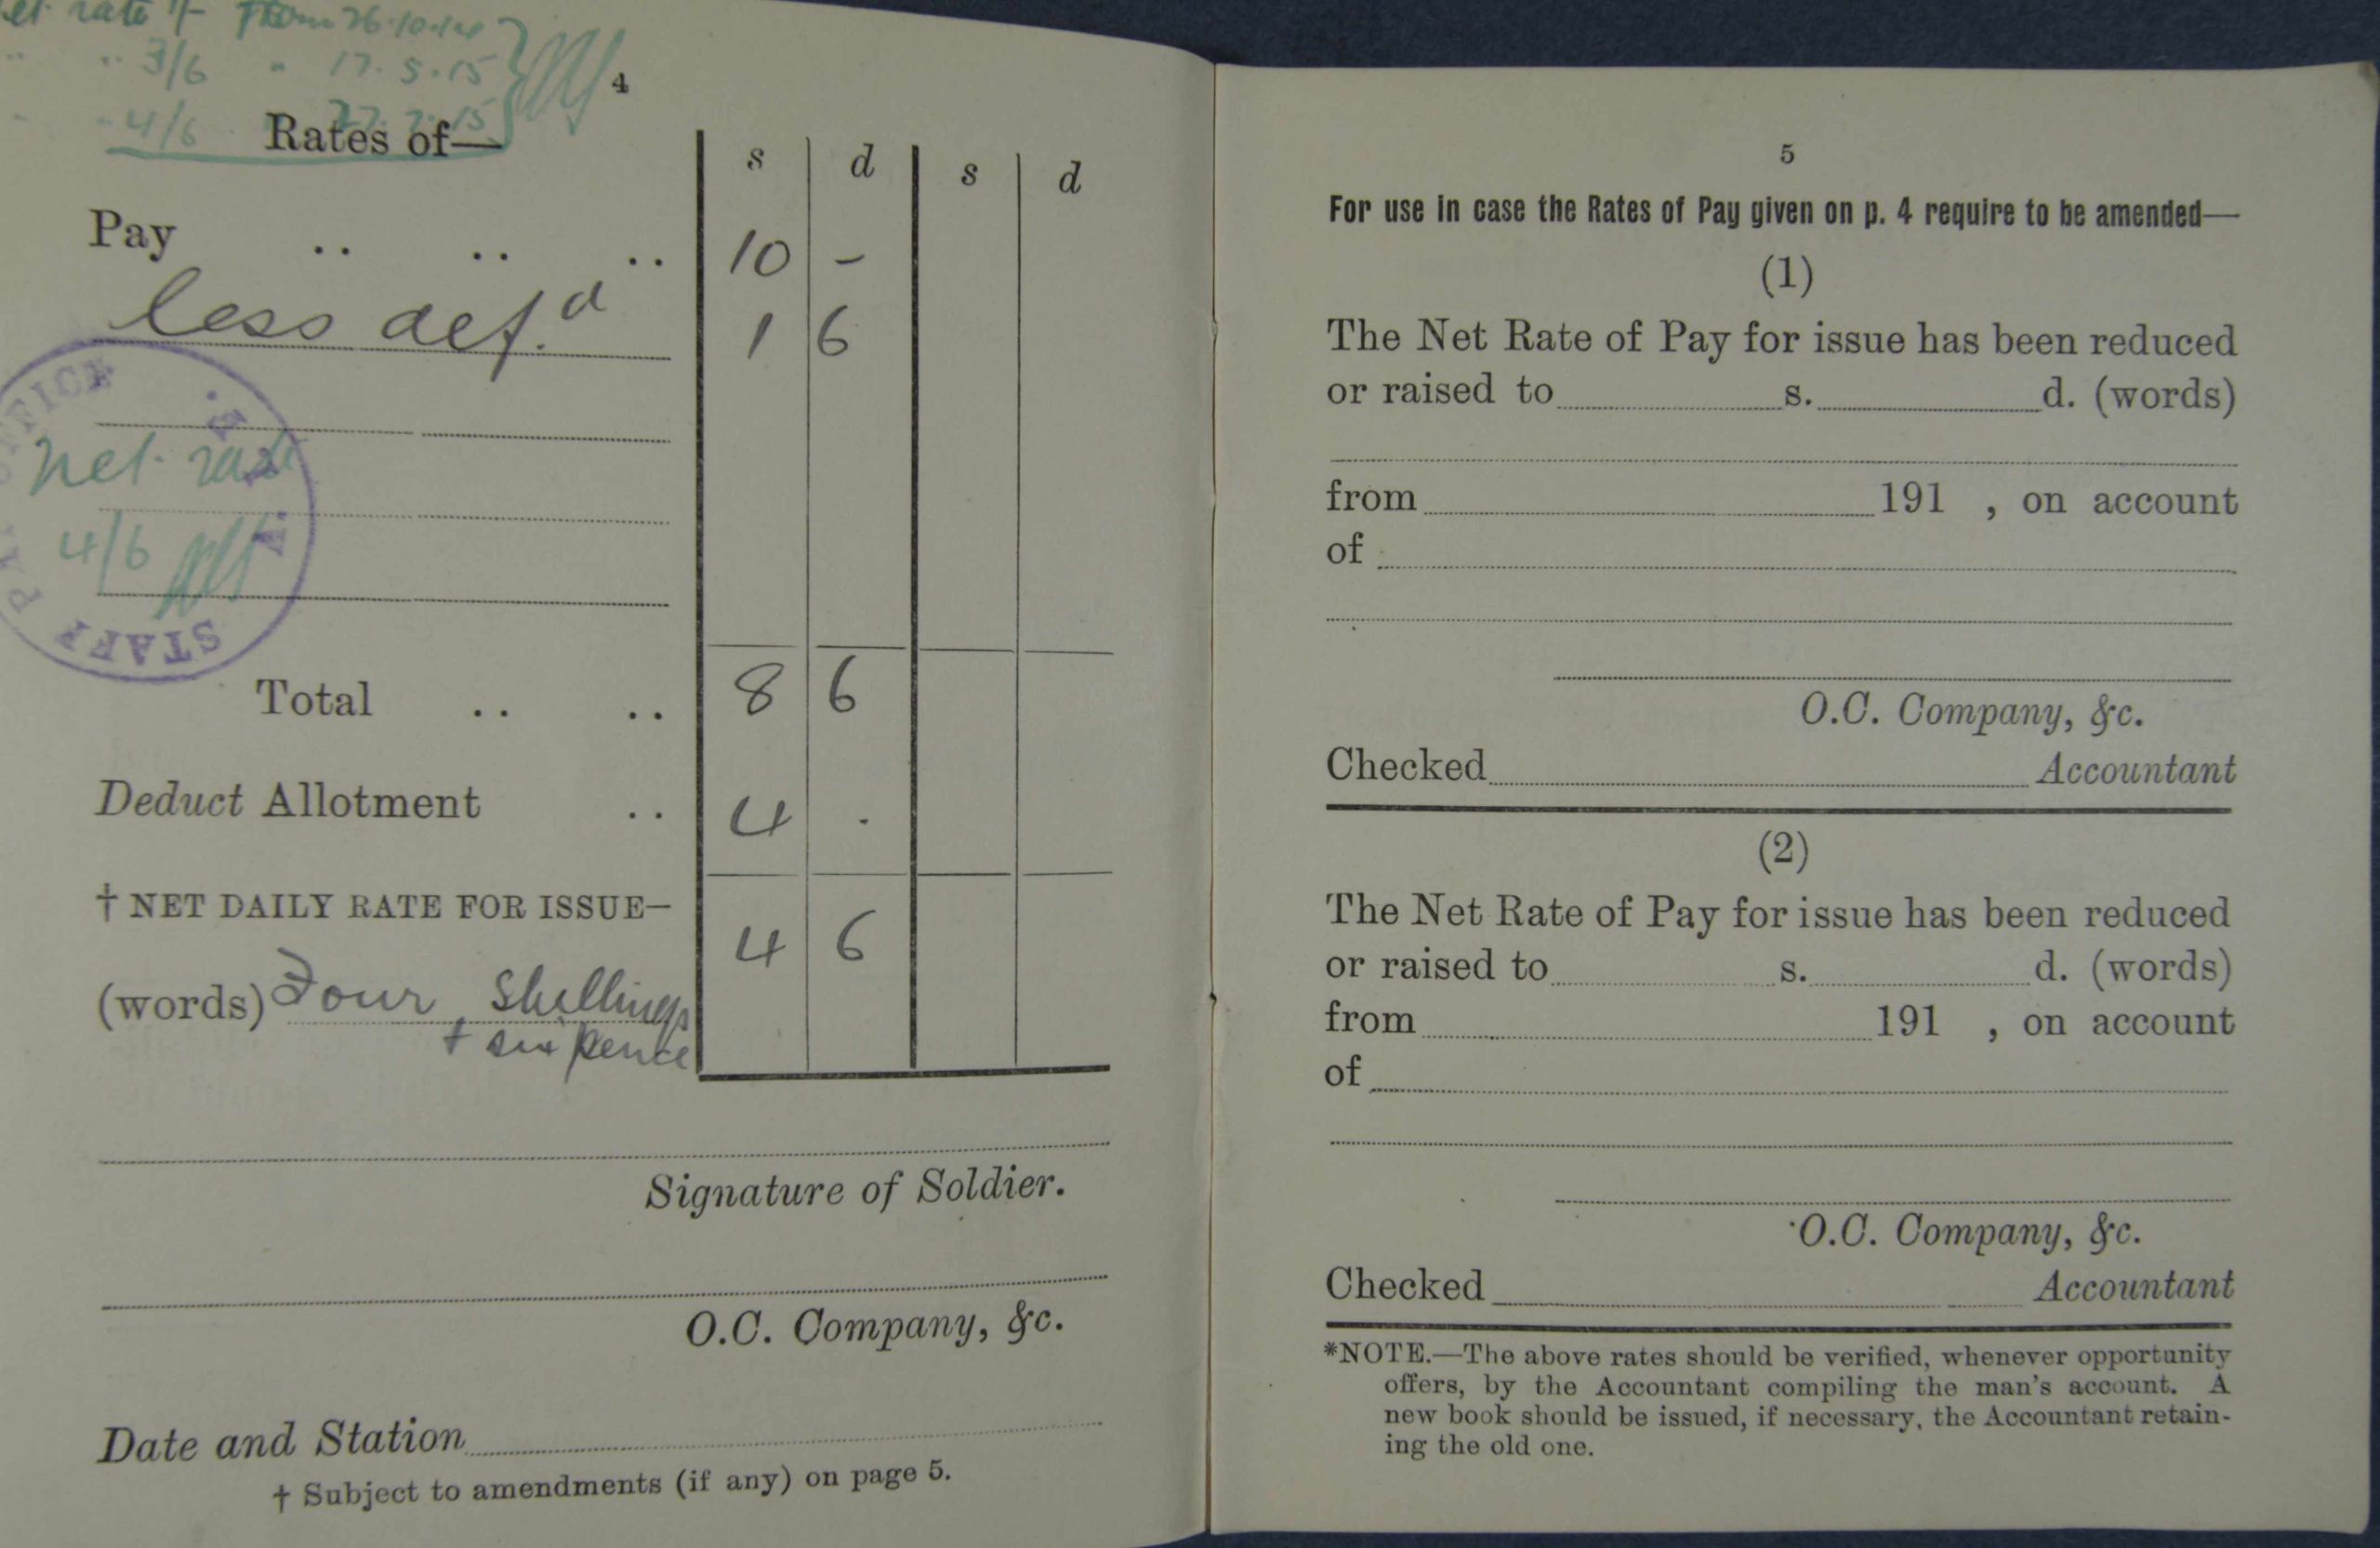 rate 1/- From 26.10.14
" .. 3/6 " 17.5.15
" - 4/6 27.7.15
4
Rates of—
s d s d
Pay .. .. .. 10 -
less def.d 1 6
Net rate
4/6
STAFF PAY OFFICE A.I.F.
Total .. .. 8 6
Deduct Allotment .. 4 .
† NET DAILY RATE FOR ISSUE—
4 6
(words) Four Shillings
+ sixpence
Signature of Soldier.
O.C. Company, &c.
Date and Station
† Subject to amendments (if any) on page 5.
5
For use in case the Rates of Pay given on p. 4 require to be amended—
(1)
The Net Rate of Pay for issue has been reduced
or raised to s. d. (words)
from 191 , on account
of
O.C. Company, &c.
Checked Accountant
(2)
The Net Rate of Pay for issue has been reduced
or raised to s. d. (words)
from 191 , on account
of
O.C. Company, &c.
Checked Accountant
*NOTE.—The above rates should be verified, whenever opportunity
offers, by the Accountant compiling the man's account. A
new book should be issued, if necessary, the Accountant retain-
ing the old one.